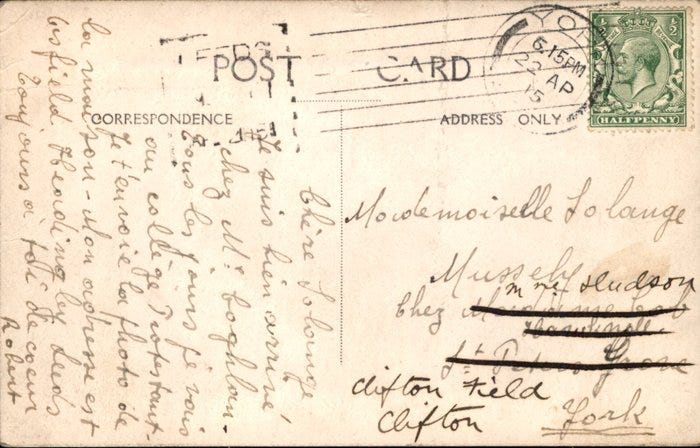 POST CARD
CORRESPONDENCE
ADDRESS ONLY
YORK
6.15 PM
22 AP
15
HALFPENNY
Chère Solange,
Je suis bien arrivé
chez Mr Coghlan.
Tous les jours je vais
au collège Protestant.
Je t'envoie la photo de
la maison - Mon adresse est
field Headingley Leeds
Toujours à toi de coeur
Robert
Mademoiselle Solange
Mussely
Mme Hudson
Chez Madame
St Peters Grove
Clifton Field
Clifton York